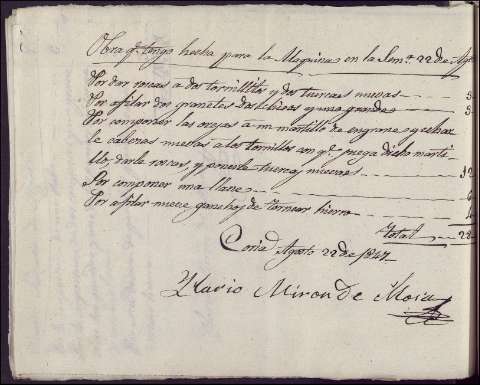 Obra q.e tengo hecha para la Maquina en la Sem.a 22 de Ag
Por dar roscas a dos tornillitos y dos tuercas nuevas 3
Por afilar dos graneles dos chicos y uno grande 3
Por componer las orejas a un martillo de engrane y echar
le cabezas nuevas a los tornillos con q.e juega dicho marti-
llo, darle roscas, y ponerle tuercas nuevas 12
Por componer una llave 6
Por afilar nueve ganchos de tornear hierro 4
Total 28
Coria Agosto 22 de 1847
Ylario Miron de Moia